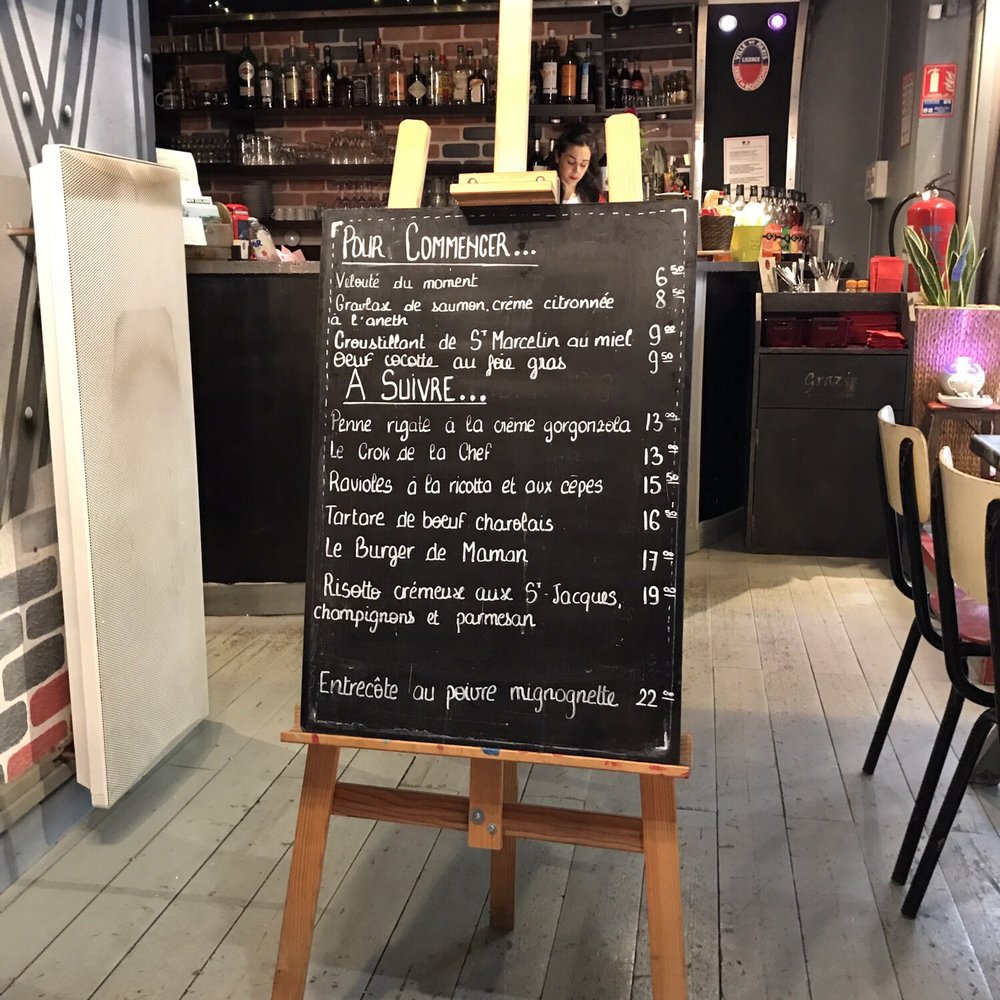 VILLE DE PARIS
LICENCE
Pour Commencer...
Velouté du moment 6 50
Gravlax de saumon, crème citronnée 8 50
à l'aneth
Croustillant de St Marcelin au miel 9 00
Oeuf cocotte au foie gras 9 50
A Suivre...
Penne rigate à la crème gorgonzola 13 00
Le Crok de la Chef 13 00
Ravioles à la ricotta et aux cèpes 15 50
Tartare de boeuf charolais 16 50
Le Burger de Maman 17 00
Risotto crémeux aux St-Jacques, 19 00
champignons et parmesan
Entrecôte au poivre mignognette 22 00